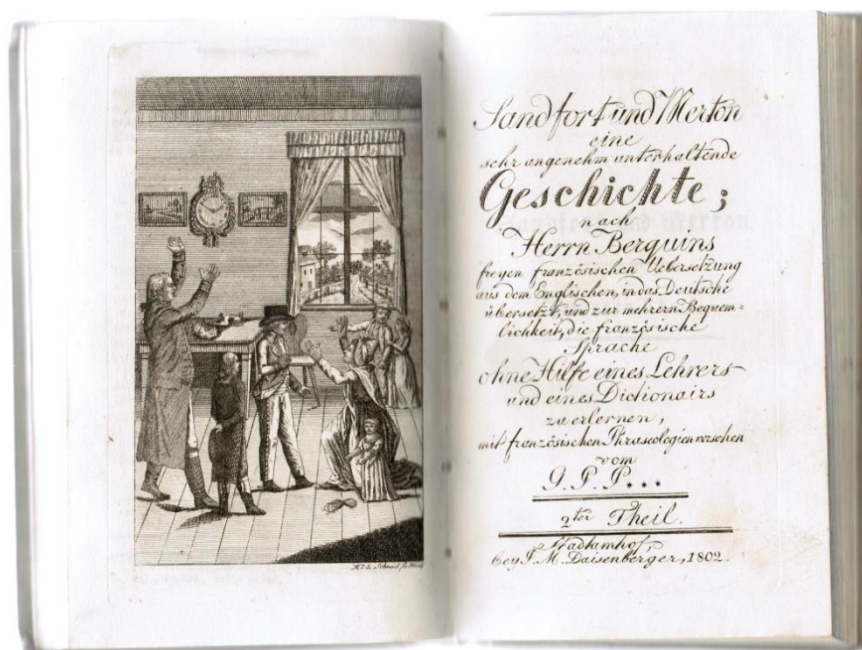 Sandfort und Merton
eine
sehr angenehm unterhaltende
Geschichte;
nach
Herrn Berquins
freyen französischen Uebersetzung
aus dem Englischen, in das Deutsche
übersetzt, und zur mehrern Bequem-
lichkeit, die französische
Sprache
ohne Hilfe eines Lehrers
und eines Dictionairs
zu erlernen,
mit französischen Phraseologien versehen
vom
J. P. P...
2ter Theil.
Stadtamhof,
bey J. M. Daisenberger, 1802.
Schmid